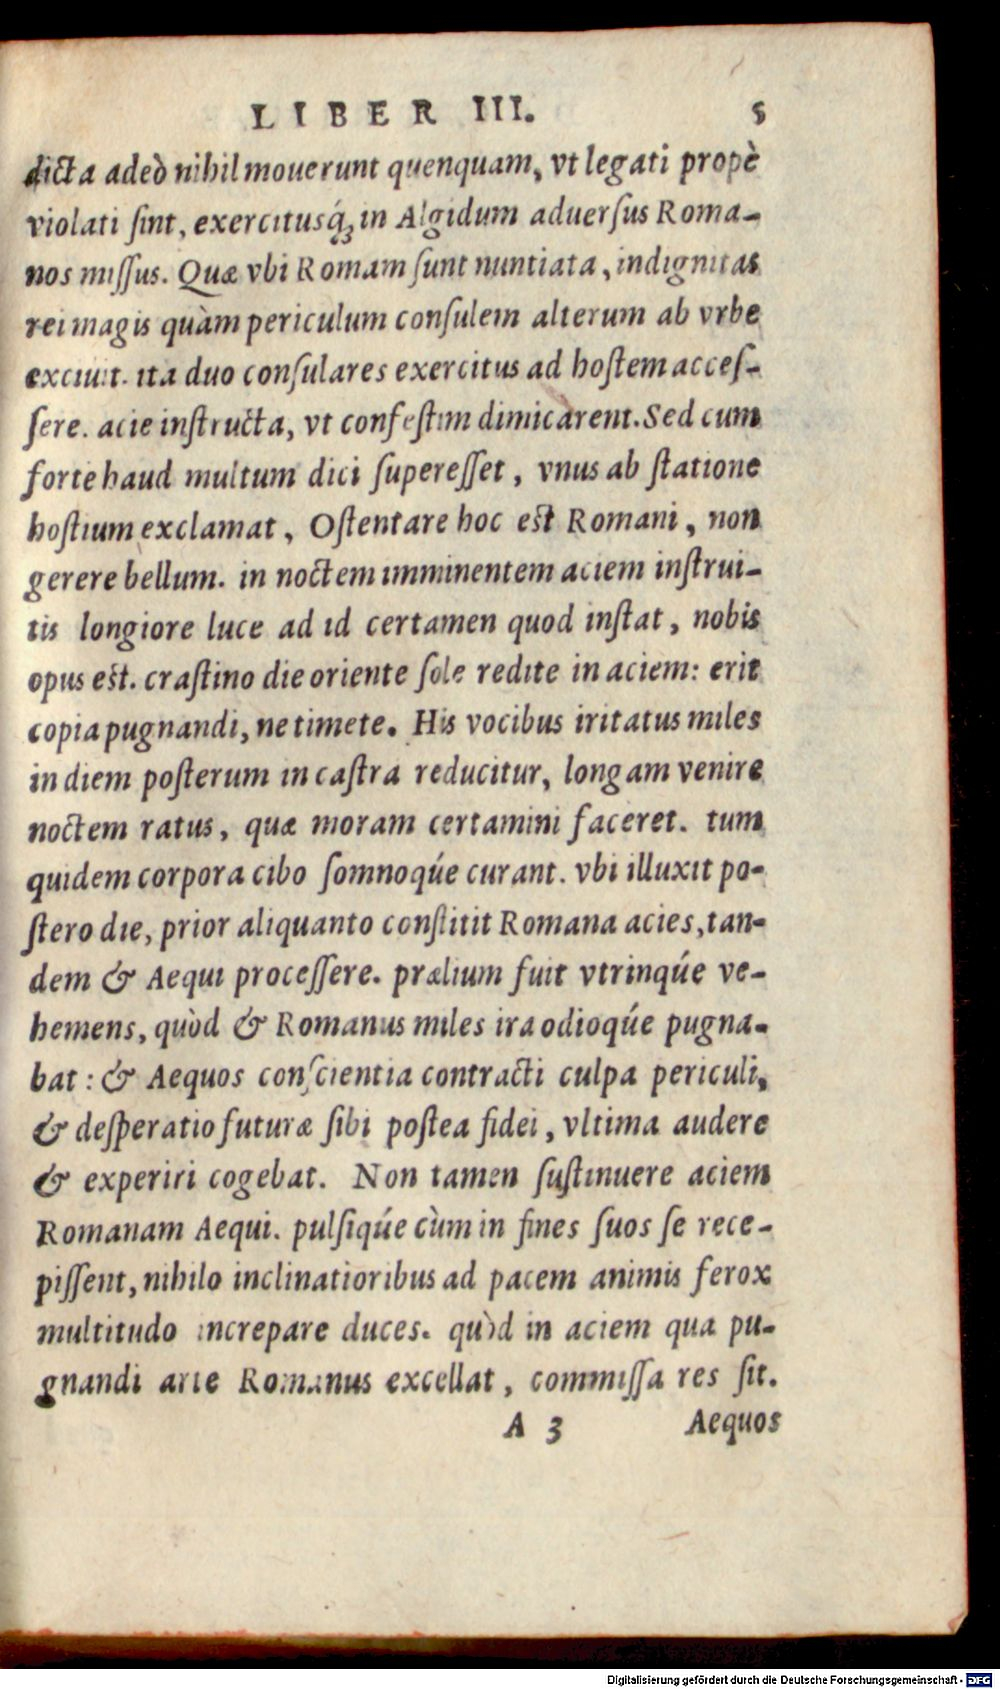 LIBER III. 5
dicta adeò nihil mouerunt quenquam, vt legati propè
violati ſint, exercitusq́; in Algidum aduerſus Roma-
nos miſſus. Quæ vbi Romam ſunt nuntiata, indignitas
rei magis quàm periculum conſulem alterum ab vrbe
exciuit. ita duo conſulares exercitus ad hoſtem acceſ-
ſere. acie inſtructa, vt confeſtim dimicarent. Sed cum
forte haud multum dici ſupereſſet, vnus ab ſtatione
hoſtium exclamat, Oſtentare hoc est Romani, non
gerere bellum. in noctem imminentem aciem inſtrui-
tis longiore luce ad id certamen quod inſtat, nobis
opus est. craſtino die oriente ſole redite in aciem: erit
copia pugnandi, ne timete. His vocibus iritatus miles
in diem poſterum in caſtra reducitur, longam venire
noctem ratus, quæ moram certamini faceret. tum
quidem corpora cibo ſomnoqúe curant. vbi illuxit po-
ſtero die, prior aliquanto conſtitit Romana acies, tan-
dem & Aequi proceſſere. prælium fuit vtrinqúe ve-
hemens, quòd & Romanus miles ira odioqúe pugna-
bat: & Aequos conſcientia contracti culpa periculi,
& deſperatio futuræ ſibi poſtea fidei, vltima audere
& experiri cogebat. Non tamen ſuſtinuere aciem
Romanam Aequi. pulſiqúe cùm in fines ſuos ſe rece-
piſſent, nihilo inclinatioribus ad pacem animis ferox
multitudo increpare duces. quòd in aciem qua pu-
gnandi arte Romanus excellat, commiſſa res ſit.
A 3 Aequos
Digitalisierung gefördert durch die Deutsche Forschungsgemeinschaft - DFG